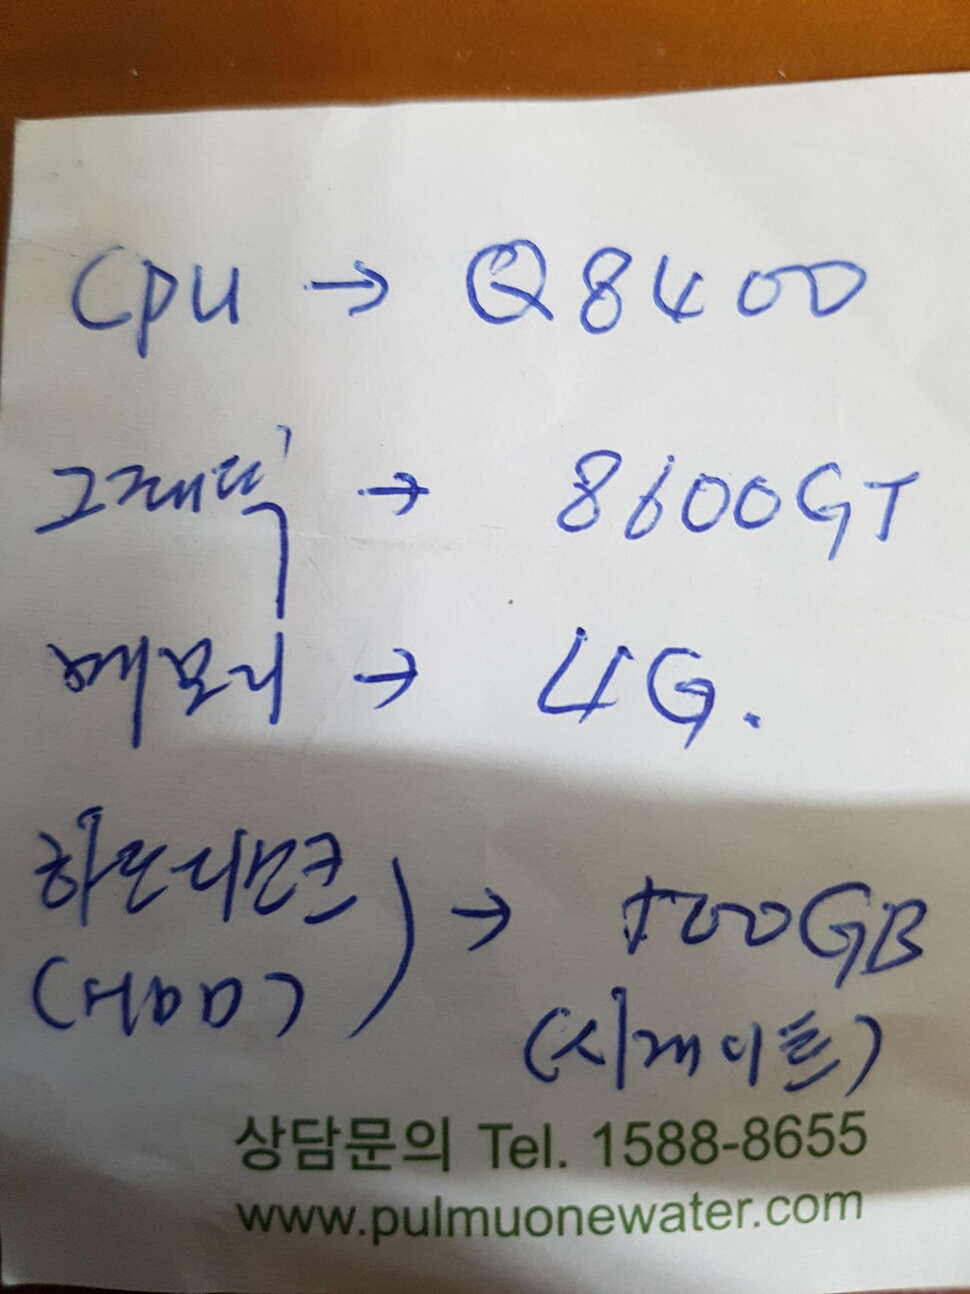 CPU → Q8400
그래픽 → 8600GT
메모리 → 4G.
하드디스크 → 500GB
(HDD) (시게이트)
상담문의 Tel. 1588-8655
www.pulmuonewater.com